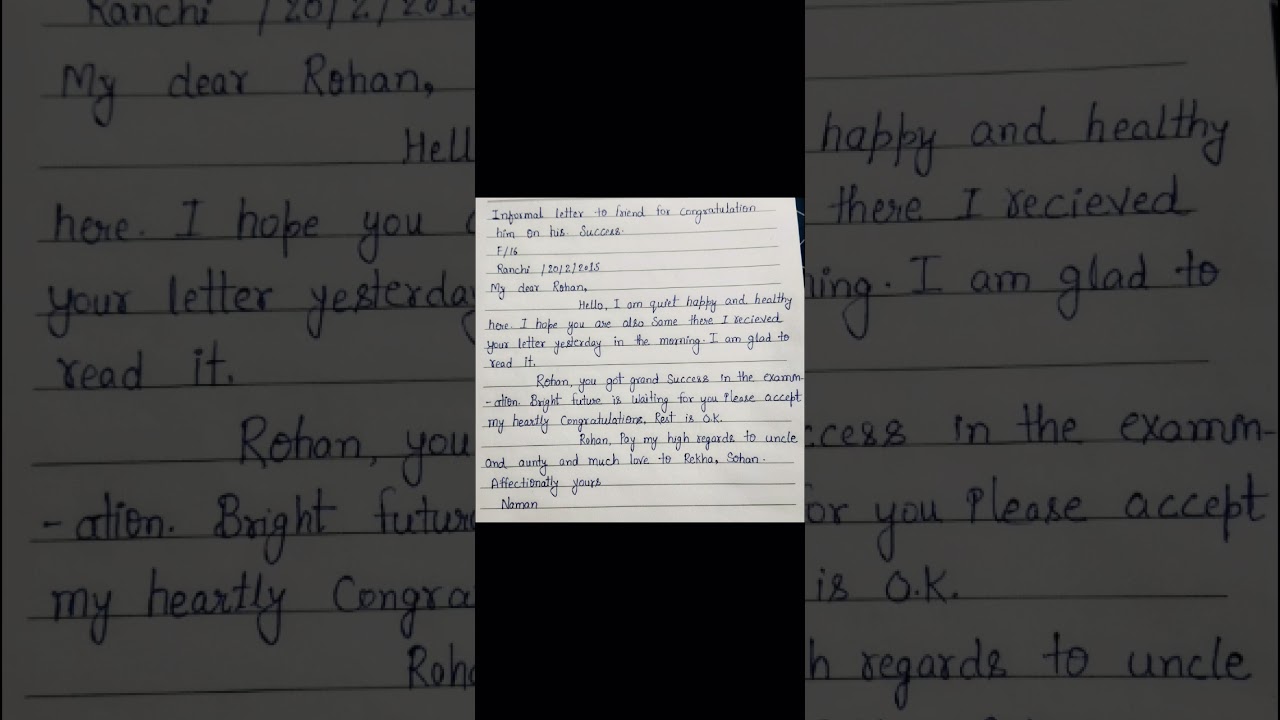 Informal letter to friend for congratulation
him on his Success.
F/16
Ranchi /20/2/2015
My dear Rohan,
Hello, I am quiet happy and healthy
here. I hope you are also Same there I recieved
your letter yesterday in the morning. I am glad to
read it.
Rohan, you got grand Success in the examm-
-ation. Bright future is waiting for you Please accept
my heartly Congratulations, Rest is O.K.
Rohan, Pay my high regards to uncle
and aunty and much love to Rekha, Sohan.
Affectionatly yours
Naman